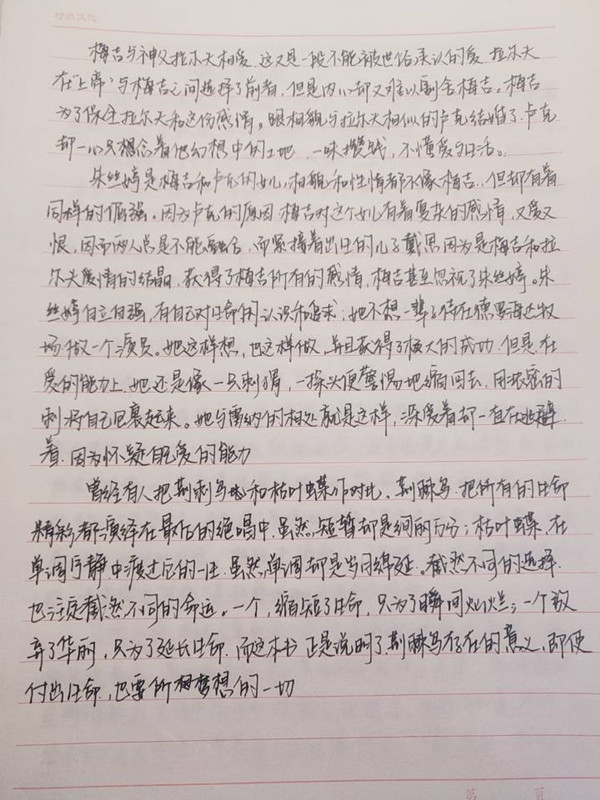 梅吉与神父拉尔夫相爱,这又是一段不能被世俗承认的爱,拉尔夫
在"上帝"与梅吉之间选择了前者,但是内心却又难以割舍梅吉。梅吉
为了保全拉尔夫和这份感情。跟相貌与拉尔夫相似的卢克结婚了,卢克
却一心只想念着他幻想中的土地,一味攒钱,不懂爱与生活。
朱丝婷是梅吉和卢克的女儿,相貌和性情都不像梅吉,但却有着
同样的倔强。因为卢克的原因,梅吉对这个女儿有着复杂的感情,又爱又
恨,因而两人总是不能融合,而紧接着出生的儿子戴恩因为是梅吉和拉
尔夫爱情的结晶,获得了梅吉所有的感情,梅吉甚至忽视了朱丝婷。朱
丝婷自立自强,有自己对生命的认识和追求,她不想一辈子待在德罗海达牧
场,做一个演员。她这样想,也这样做,并且获得了极大的成功,但是,在
爱的能力上,她还是像一只刺猬,一探头便警惕地缩回去,用浓密的
刺将自己包裹起来。她与雷纳的相处就是这样,深爱着却一直在逃避
着,因为怀疑自己爱的能力
曾经有人把荆棘鸟和枯叶蝶作对比,荆棘鸟,把所有的生命
精彩都演绎在最后的绝唱中,虽然短暂却是绚丽万分;枯叶蝶,在
单调宁静中度过它的一生,虽然单调却是岁月绵延。截然不同的选择,
也注定截然不同的命运。一个,缩短了生命,只为了瞬间灿烂;一个放
弃了华丽,只为了延长生命,而这本书,正是说明了荆棘鸟存在的意义,即使
付出生命,也要所梦想的一切
第 页